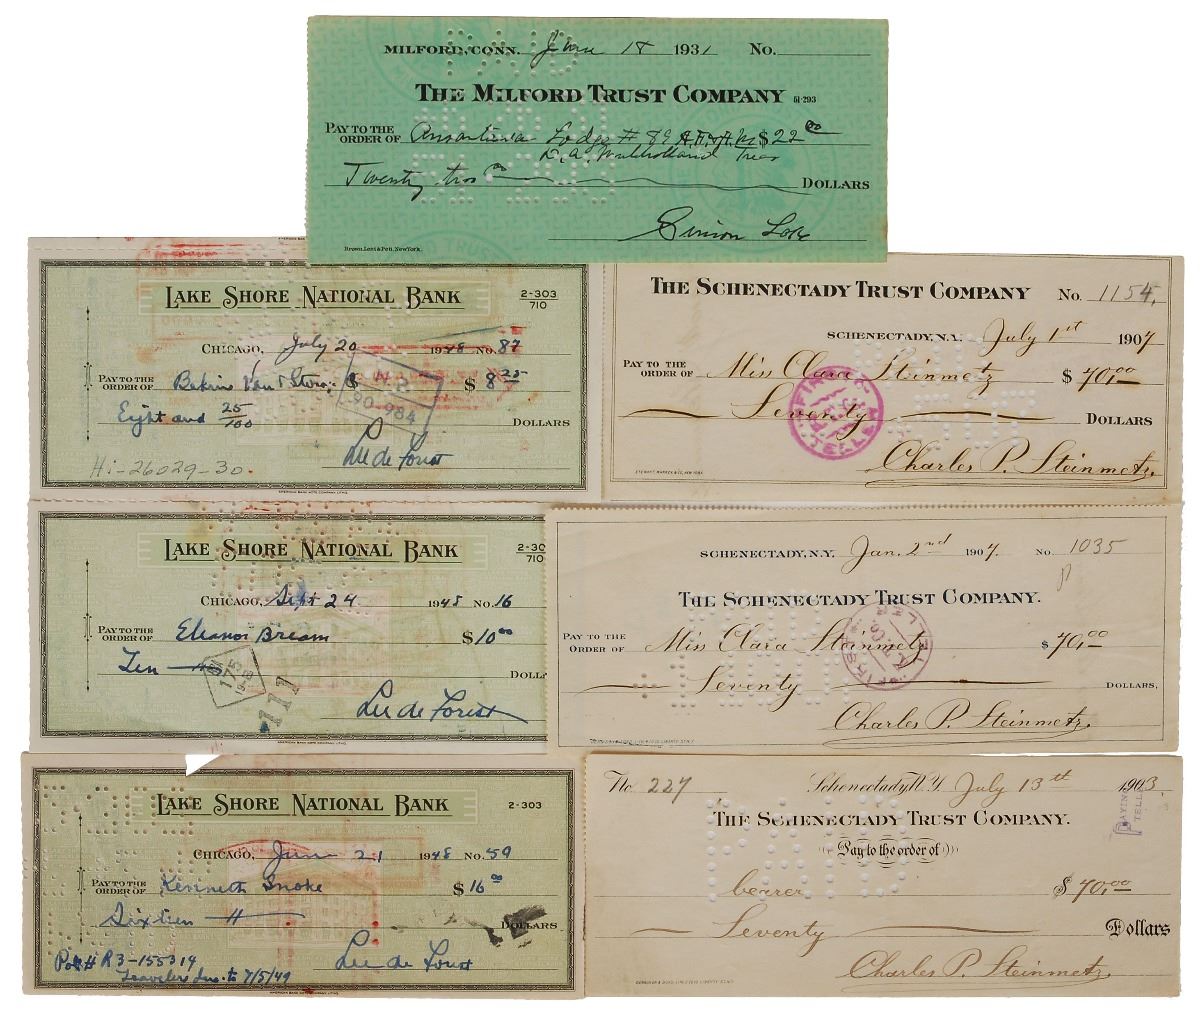 MILFORD, CONN. June 18 1931 No.
THE MILFORD TRUST COMPANY 51-293
PAY TO THE ORDER OF Ansantawae Lodge # 89 A.F.&A.M. $ 22 00
D.A. Mulholland Treas
Twenty two 00 DOLLARS
Simon Lake
Brown, Lent & Pett, New York.
LAKE SHORE NATIONAL BANK 2-303/710
CHICAGO, July 20 1948 No. 87
PAY TO THE ORDER OF Bekins Van & Storage $ 8 25
Eight and 25/100 DOLLARS
N.P.
90-984
Lee de Forest
Hi-26029-30.
AMERICAN BANK NOTE COMPANY, LITHO.
THE SCHENECTADY TRUST COMPANY No. 1154.
SCHENECTADY, N.Y. July 1st 1907
PAY TO THE ORDER OF Miss Clara Steinmetz $ 70.00
Seventy DOLLARS
FIRST TELLER
Charles P. Steinmetz.
LAKE SHORE NATIONAL BANK 2-30
710
CHICAGO, Sept 24 1948 No. 16
PAY TO THE ORDER OF Eleanor Bream $ 10 00
Ten DOLL
175
111
Lee de Forest
AMERICAN BANK NOTE COMPANY, LITHO.
SCHENECTADY, N.Y. Jan. 2nd 1907. No. 1035
THE SCHENECTADY TRUST COMPANY.
PAY TO THE ORDER OF Miss Clara Steinmetz $ 70.00
Seventy DOLLARS,
FIRST TELLER
Charles P. Steinmetz.
LAKE SHORE NATIONAL BANK 2-303
CHICAGO, June 21 1948 No. 59
PAY TO THE ORDER OF Kenneth Snoke $ 16 00
Sixteen DOLLARS
Pol # R3-155314
Travelers Ins. to 7/5/49
Lee de Forest
AMERICAN BANK NOTE COMPANY, LITHO.
No. 227 Schenectady, N.Y. July 13th 1903.
PAYING TELLER
THE SCHENECTADY TRUST COMPANY.
Pay to the order of
bearer $ 70.00
Seventy Dollars
Charles P. Steinmetz.